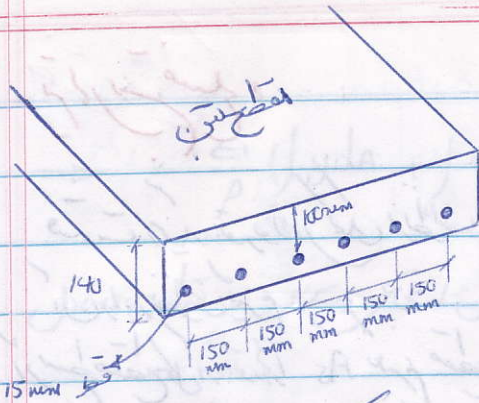 مقطع بتن
100mm
140
150 mm
150 mm
150 mm
150 mm
150 mm
15 mm قطر